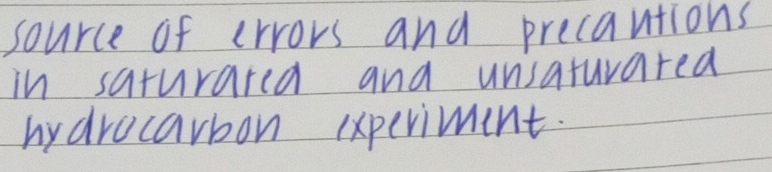 source of errors and precautions
in saturated and unsaturated
hydrocarbon experiment.